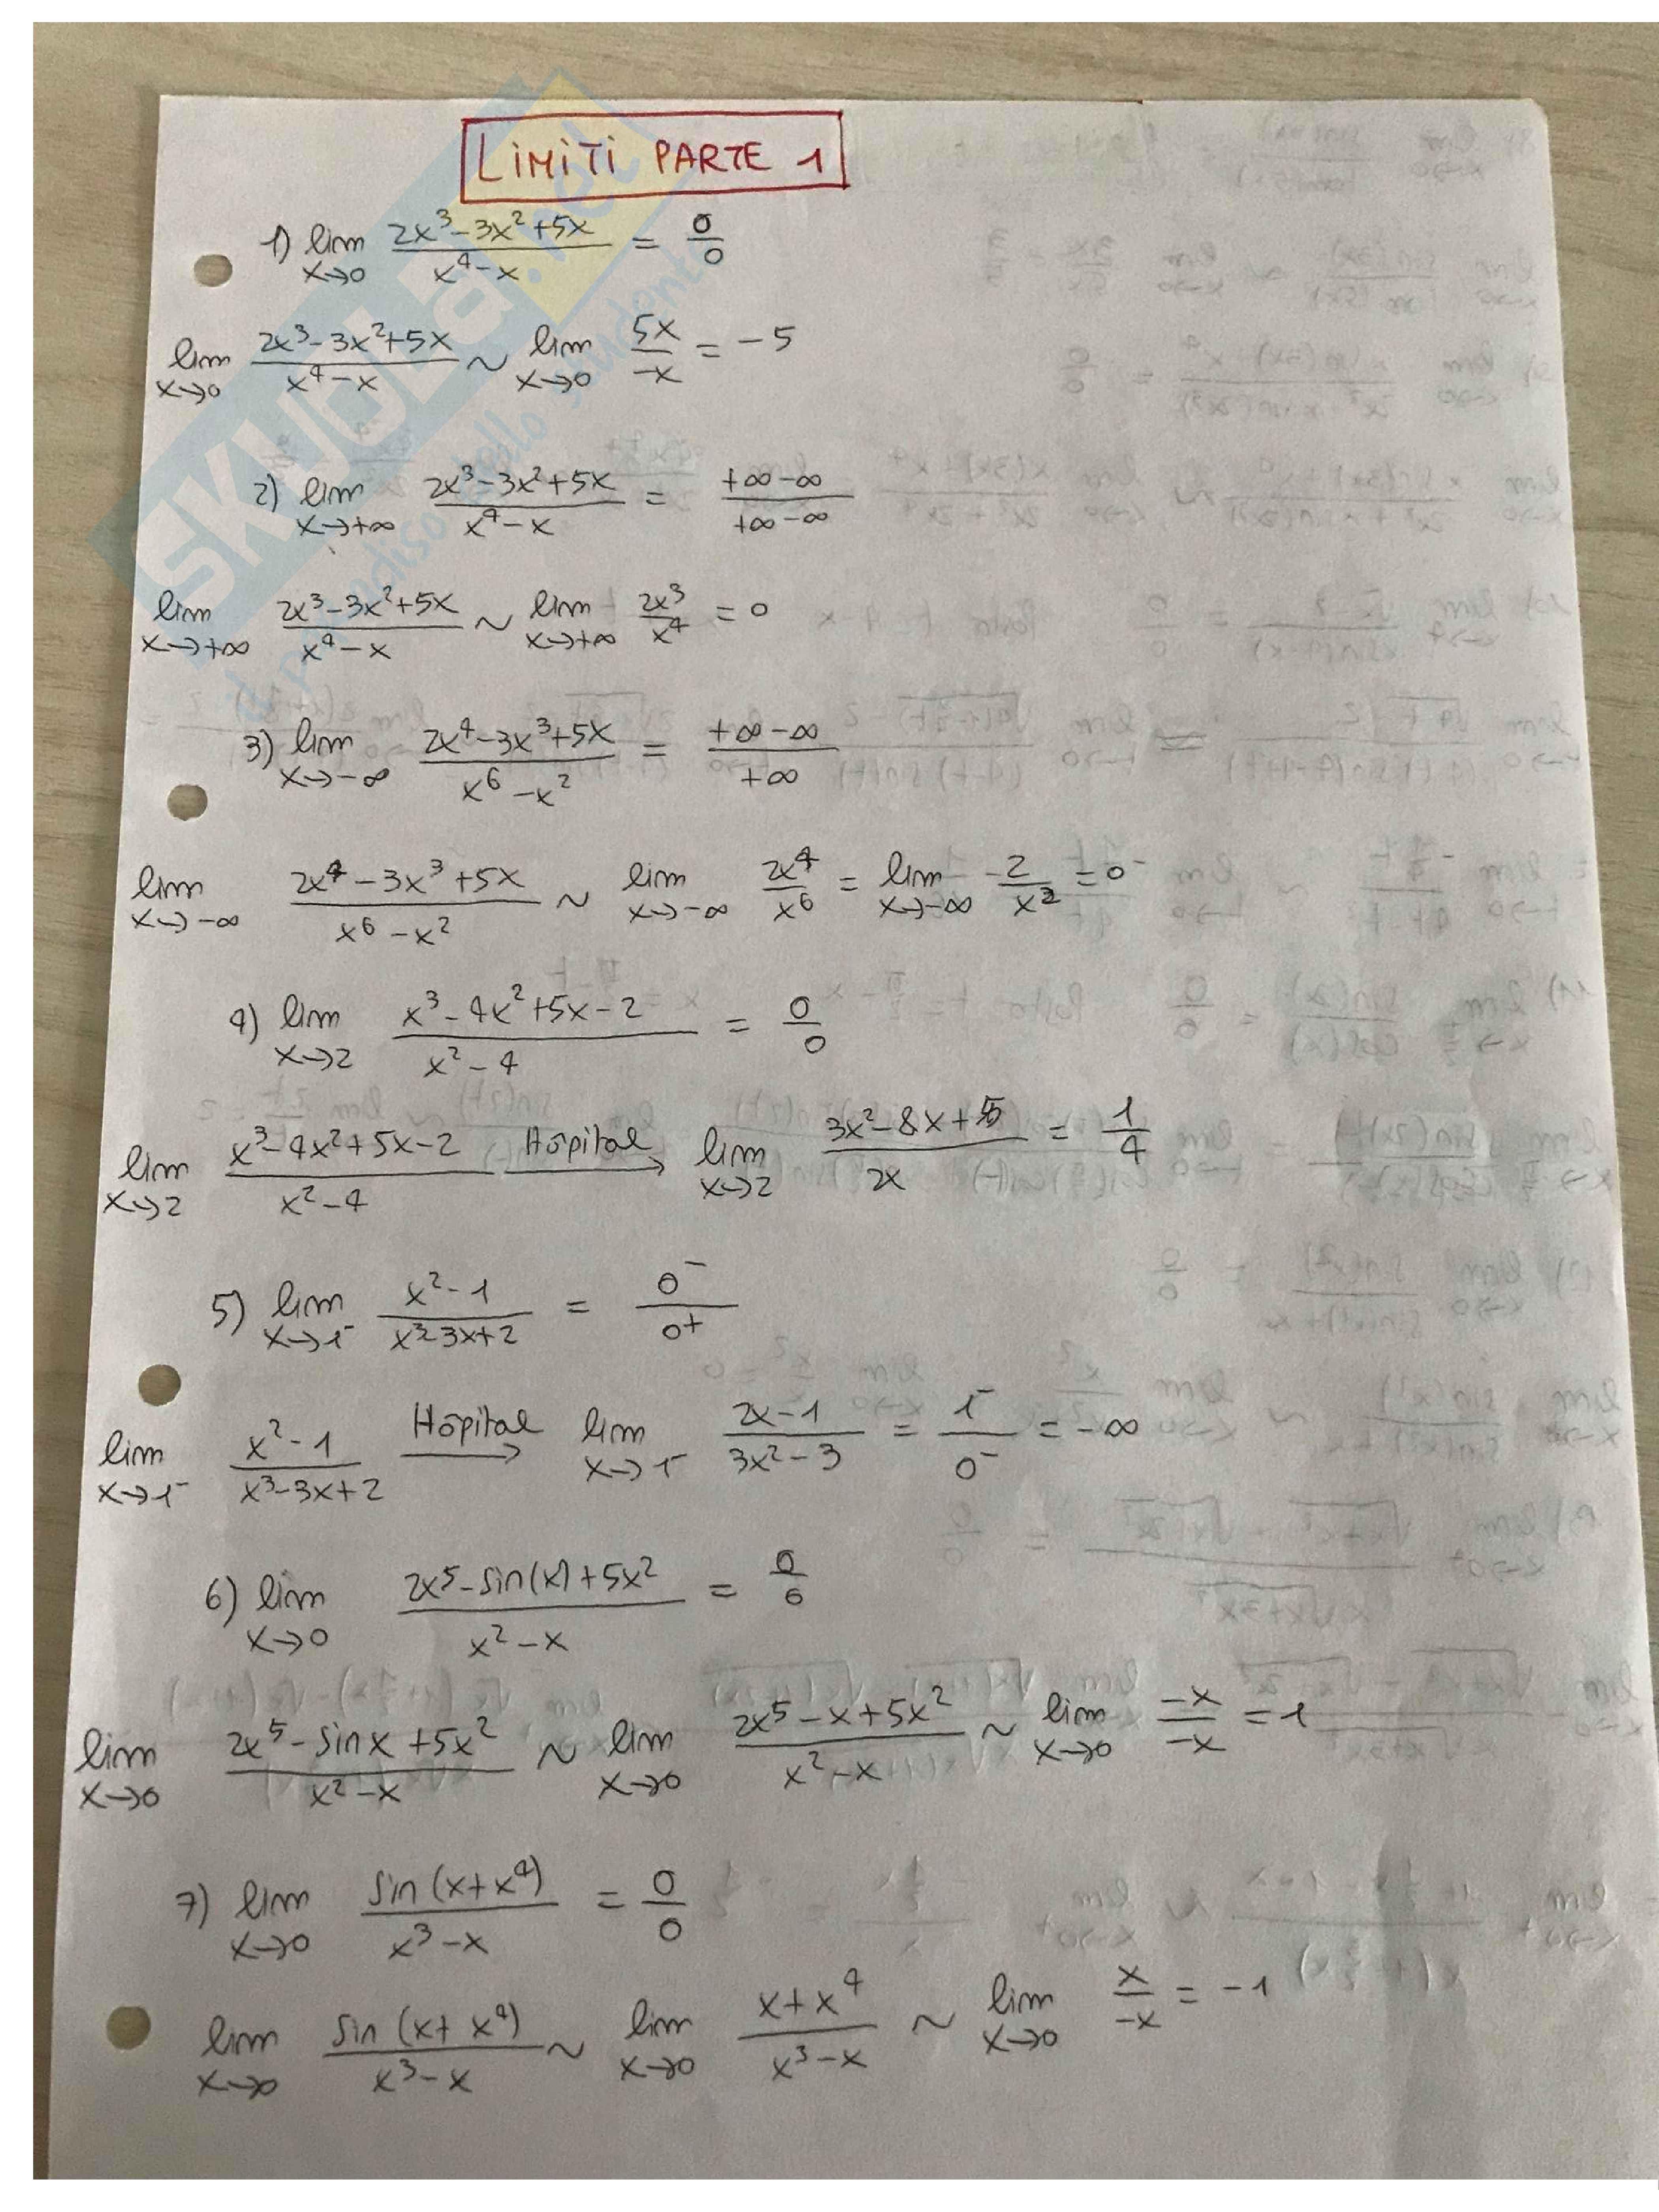 LIMITI PARTE 1
1) lim x→0 (2x³-3x²+5x)/(x⁴-x) = 0/0
lim x→0 (2x³-3x²+5x)/(x⁴-x) ~ lim x→0 5x/-x = -5
2) lim x→+∞ (2x³-3x²+5x)/(x⁴-x) = (+∞-∞)/(+∞-∞)
lim x→+∞ (2x³-3x²+5x)/(x⁴-x) ~ lim x→+∞ 2x³/x⁴ = 0
3) lim x→-∞ (2x⁴-3x³+5x)/(x⁶-x²) = (+∞-∞)/+∞
lim x→-∞ (2x⁴-3x³+5x)/(x⁶-x²) ~ lim x→-∞ 2x⁴/x⁶ = lim x→-∞ -2/x² = 0⁻
4) lim x→2 (x³-4x²+5x-2)/(x²-4) = 0/0
lim x→2 (x³-4x²+5x-2)/(x²-4) Hôpital→ lim x→2 (3x²-8x+5)/2x = 1/4
5) lim x→1⁻ (x²-1)/(x³-3x+2) = 0⁻/0⁺
lim x→1⁻ (x²-1)/(x³-3x+2) Hôpital→ lim x→1⁻ (2x-1)/(3x²-3) = 1⁻/0⁻ = -∞
6) lim x→0 (2x⁵-sin(x)+5x²)/(x²-x) = 0/0
lim x→0 (2x⁵-sinx+5x²)/(x²-x) ~ lim x→0 (2x⁵-x+5x²)/(x²-x) ~ lim x→0 -x/-x = 1
7) lim x→0 sin(x+x⁴)/(x³-x) = 0/0
lim x→0 sin(x+x⁴)/(x³-x) ~ lim x→0 (x+x⁴)/(x³-x) ~ lim x→0 x/-x = -1
SKUOLA.net
il paradiso dello studente